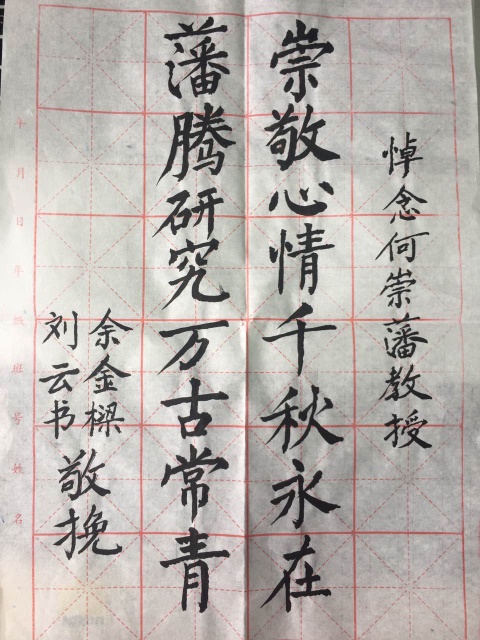 悼念何崇藩教授
崇敬心情千秋永在
藩腾研究万古常青
余金樑
刘云书
敬挽
年月日年级班号姓名